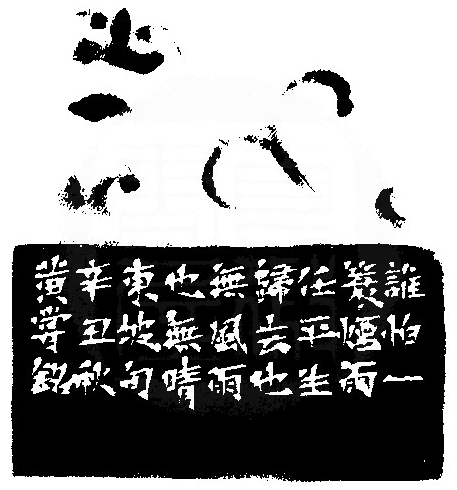 誰怕一
蓑煙雨
任平生
歸去也
無風雨
也無晴
東坡句
辛丑秋
黃嘗銘